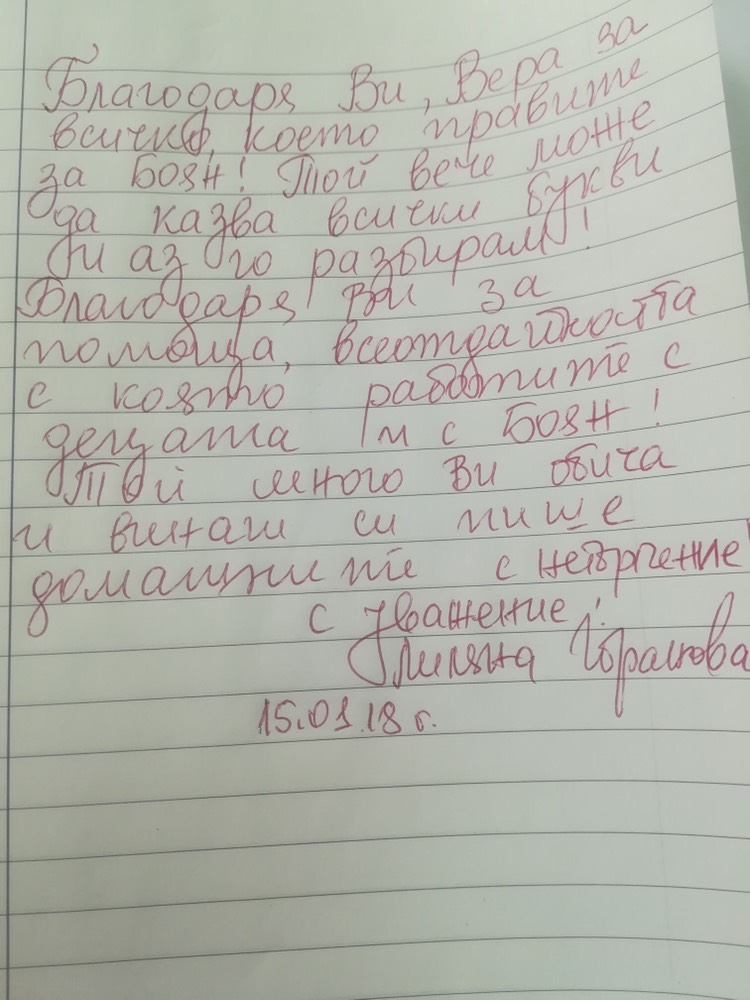 Благодаря Ви, Вера за
всичко, което правите
за Боян! Той вече може
да казва всички букви
и аз го разбирам!
Благодаря Ви за
помоща, всеотдайността
с която работите с
децата и с Боян!
Той много Ви обича
и винаги си пише
домашните с нетърпение
с уважение:
Лиляна
15.01.18 г.